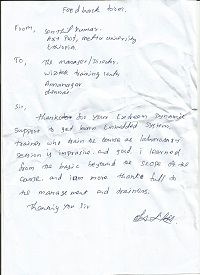 Feed back form.
From,
Senthil kumar.
Ast Prof, mettu university
Ethiopia
To,
The manager/Director.
wiztek training
Annanagar
chennai
Sir,
thanks for your Extream Dynamic
Support to get learn Embedded System
trainer who train the course as laboratory
session is impressive and good. i learned
from the basic beyond the scope of the
course, and i am more thanks full to
the management and training.
Thanking you Sir